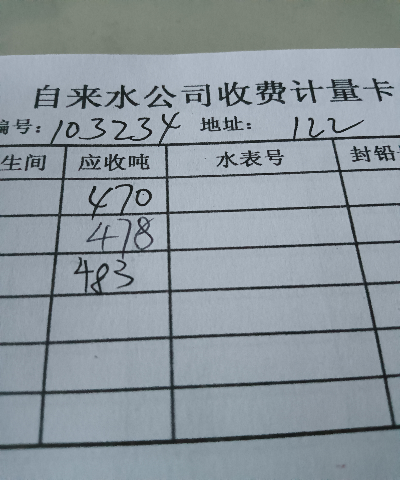 自来水公司收费计量卡
编号:103234 地址: 122
生间 应收吨 水表号 封铅
470
478
483